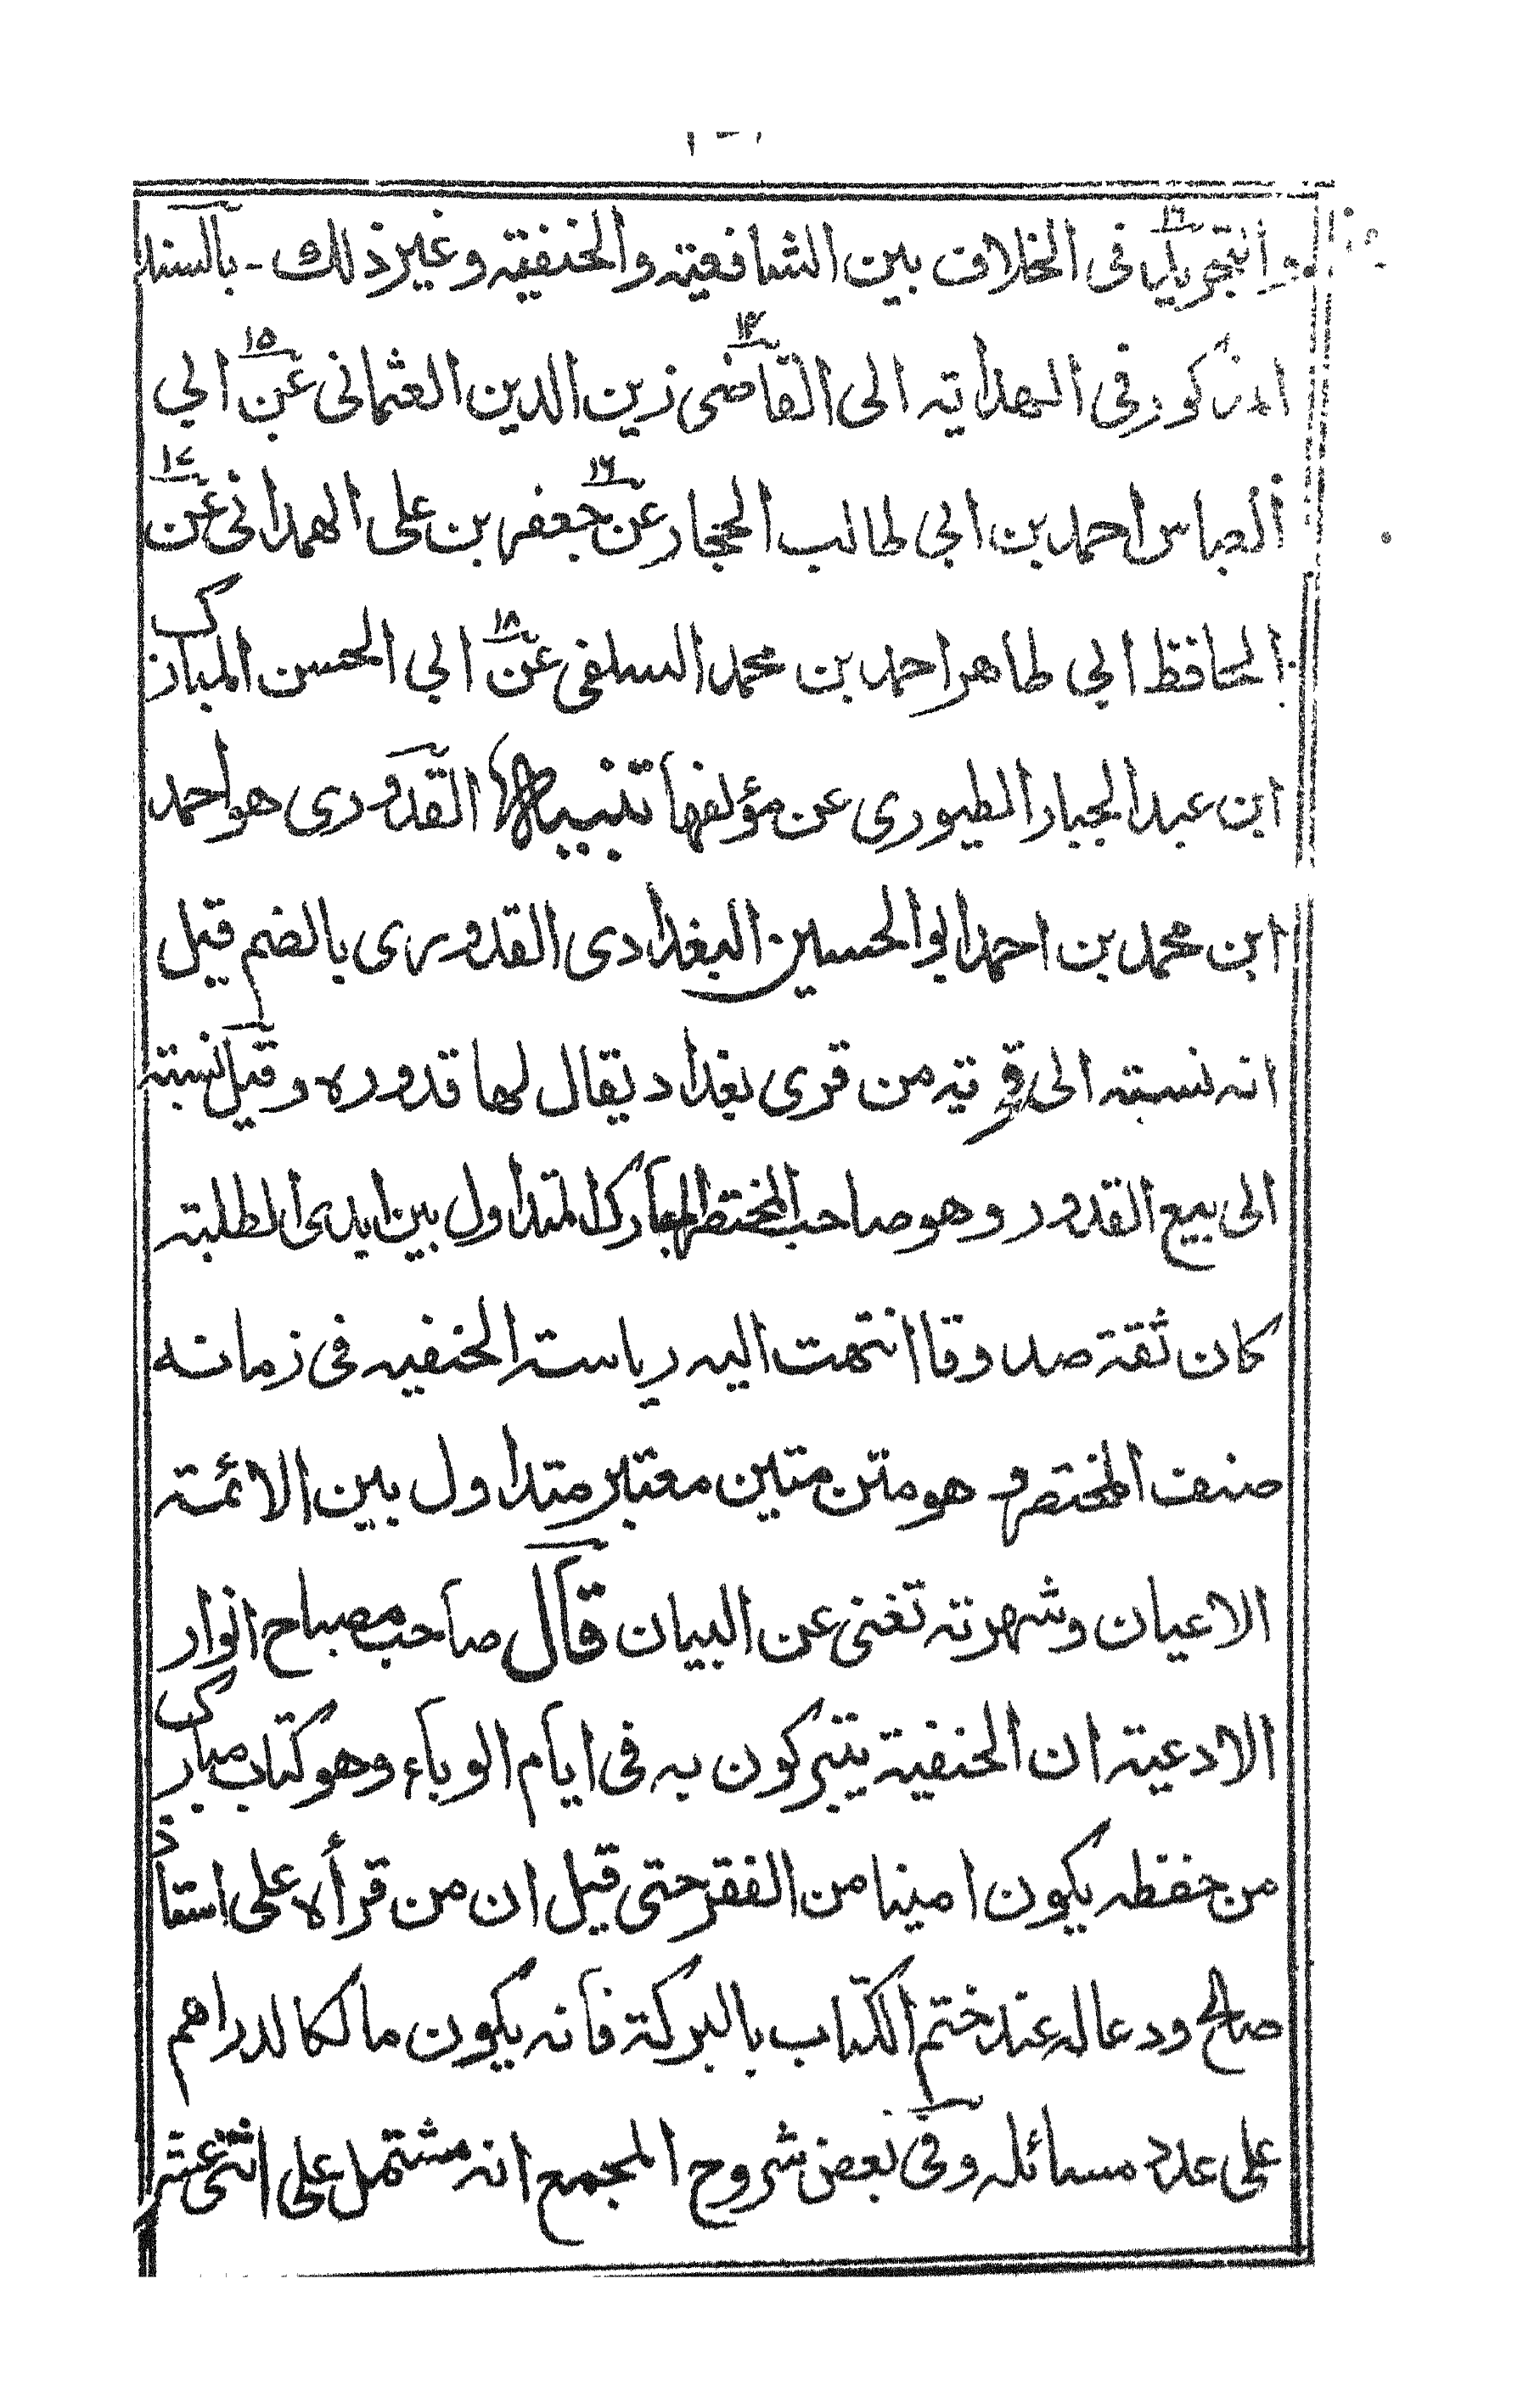 والتجريد فى الخلاف بين الشافعية والحنفية وغير ذلك - بالسند
المذكور فى الهداية الى القاضى زين الدين العثمانى عن ابي
العباس احمد بن ابي طالب الحجار عن جعفر بن على الهمدانى عن
الحافظ ابي طاهر احمد بن محمد السلفى عن ابي الحسن المبارك
ابن عبد الجبار الطيورى عن مؤلفها تنبيه القدورى هو احمد
ابن محمد بن احمد ابو الحسين البغدادى القدورى بالضم قيل
انه نسبته الى قرية من قرى بغداد يقال لها قدوره وقيل نسبته
الى بيع القدور وهو صاحب المختصر المبارك المتداول بين ايدى الطلبة
كان ثقة صدوقا انتهت اليه رياسة الحنفيه فى زمانه
صنف المختصر وهو متن متين معتبر متداول بين الائمة
الاعيان وشهرته تغنى عن البيان قال صاحب مصباح انوار
الادعية ان الحنفية يتبركون به فى ايام الوباء وهو كتاب مبارك
من حفظه يكون امينا من الفقر حتى قيل ان من قرأه على استاذ
صالح ودعا له عند ختم الكتاب بالبركة فانه يكون مالكا لدراهم
على عدد مسائله وفى بعض شروح المجمع انه مشتمل على اثنى عشر